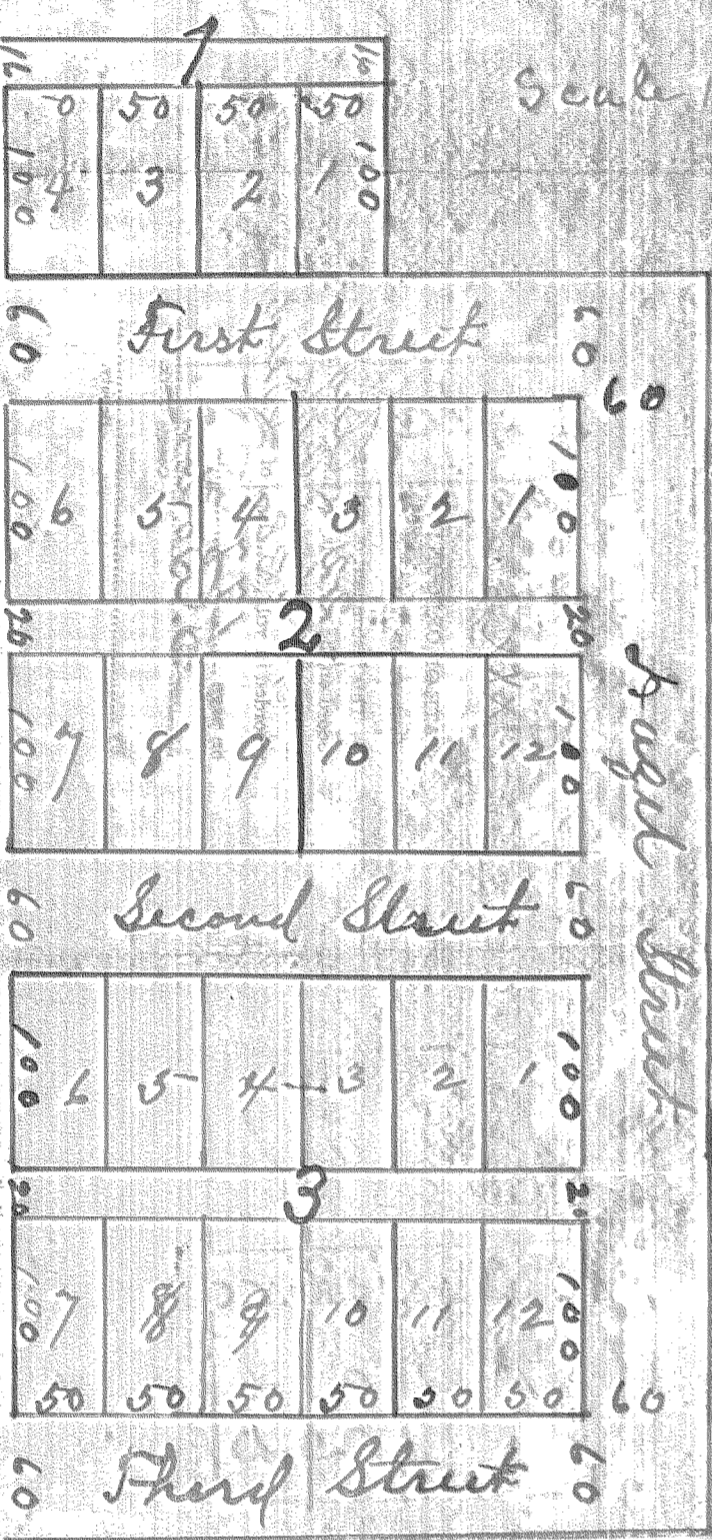 1
16 16
Scale 1
0 50 50 50
100 4 3 2 1 100
60 First Street 60
60
100 6 5 4 3 2 1 100
20 2 20
100 7 8 9 10 11 12 100
Street
60 Second Street 60
100 6 5 4 3 2 1 100
20 3 2
100 7 8 9 10 11 12 100
50 50 50 50 50 50 60
60 Third Street 60